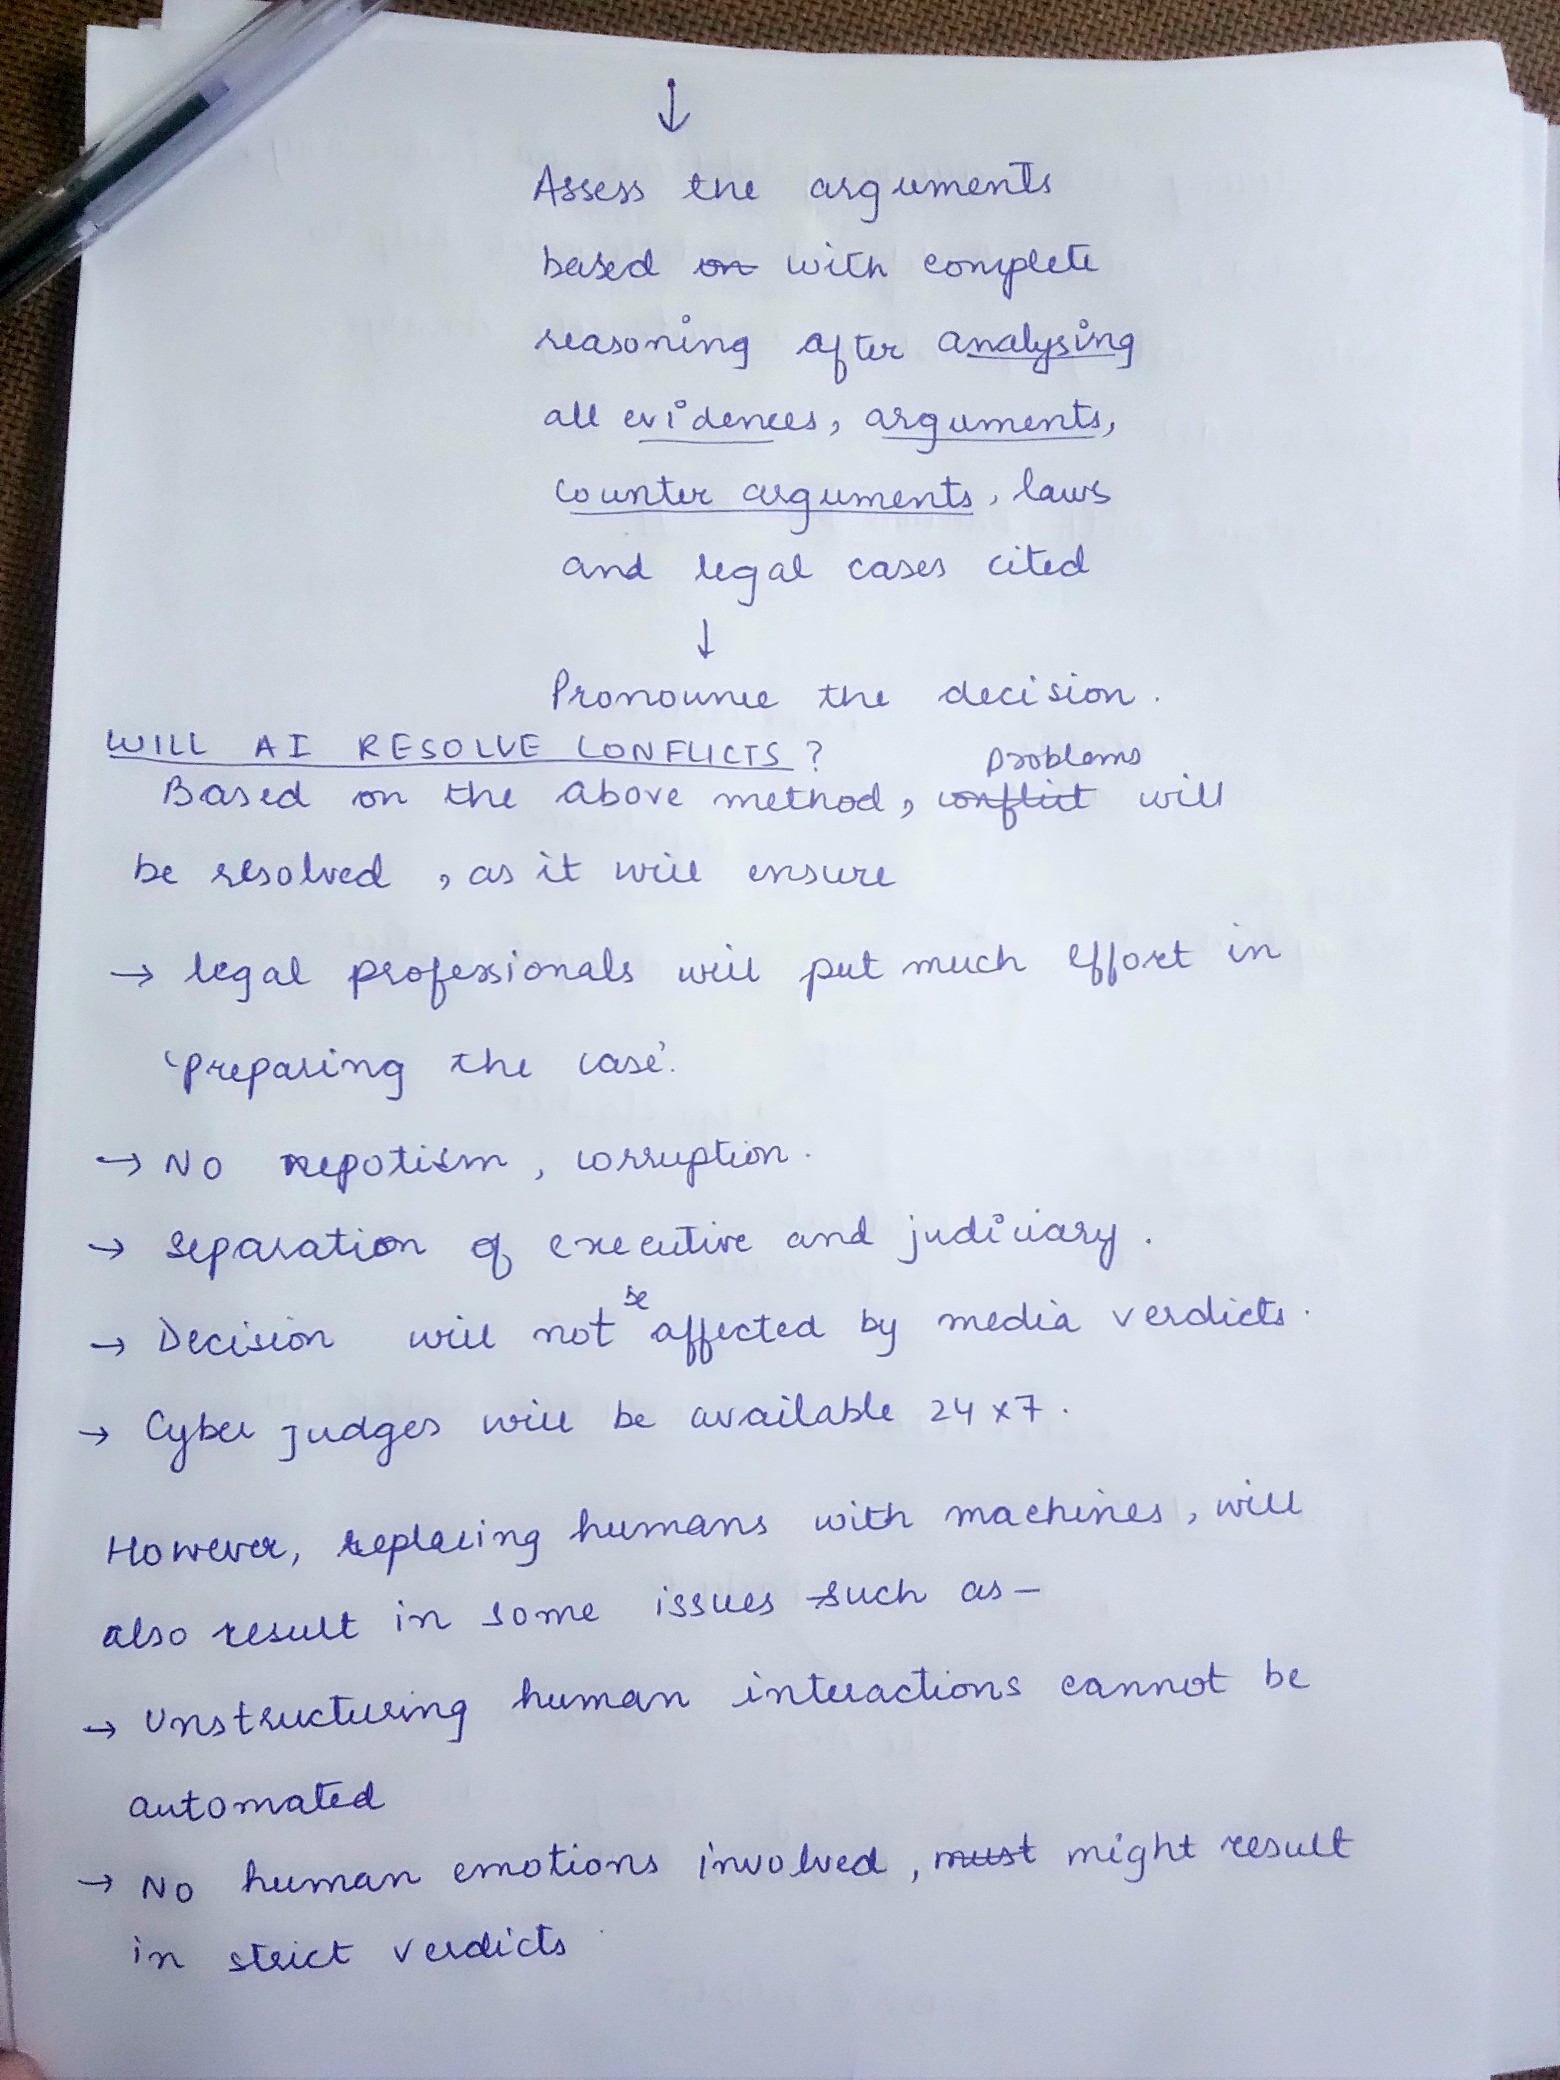 ↓
Assess the arguments
based ~~on~~ with complete
reasoning after analysing
all evidences, arguments,
counter arguments, laws
and legal cases cited
↓
Pronounce the decision.
WILL AI RESOLVE CONFLICTS?
Based on the above method, ~~conflict~~ problems will
be resolved, as it will ensure
→ legal professionals will put much effort in
'preparing the case'.
→ No nepotism, corruption.
→ Separation of executive and judiciary.
→ Decision will not be affected by media verdicts.
→ Cyber judges will be available 24x7.
However, replacing humans with machines, will
also result in some issues such as-
→ Unstructuring human interactions cannot be
automated
→ No human emotions involved, ~~must~~ might result
in strict verdicts